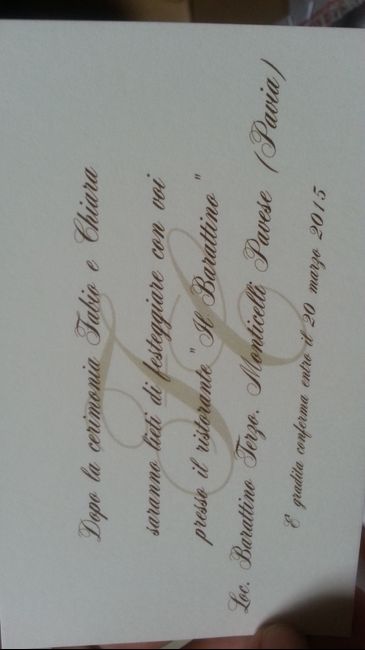 Dopo la cerimonia Fabio e Chiara
saranno lieti di festeggiare con voi
presso il ristorante "Il Barattino"
Loc. Barattino Terzo, Monticelli Pavese (Pavia)
E gradita conferma entro il 20 marzo 2015